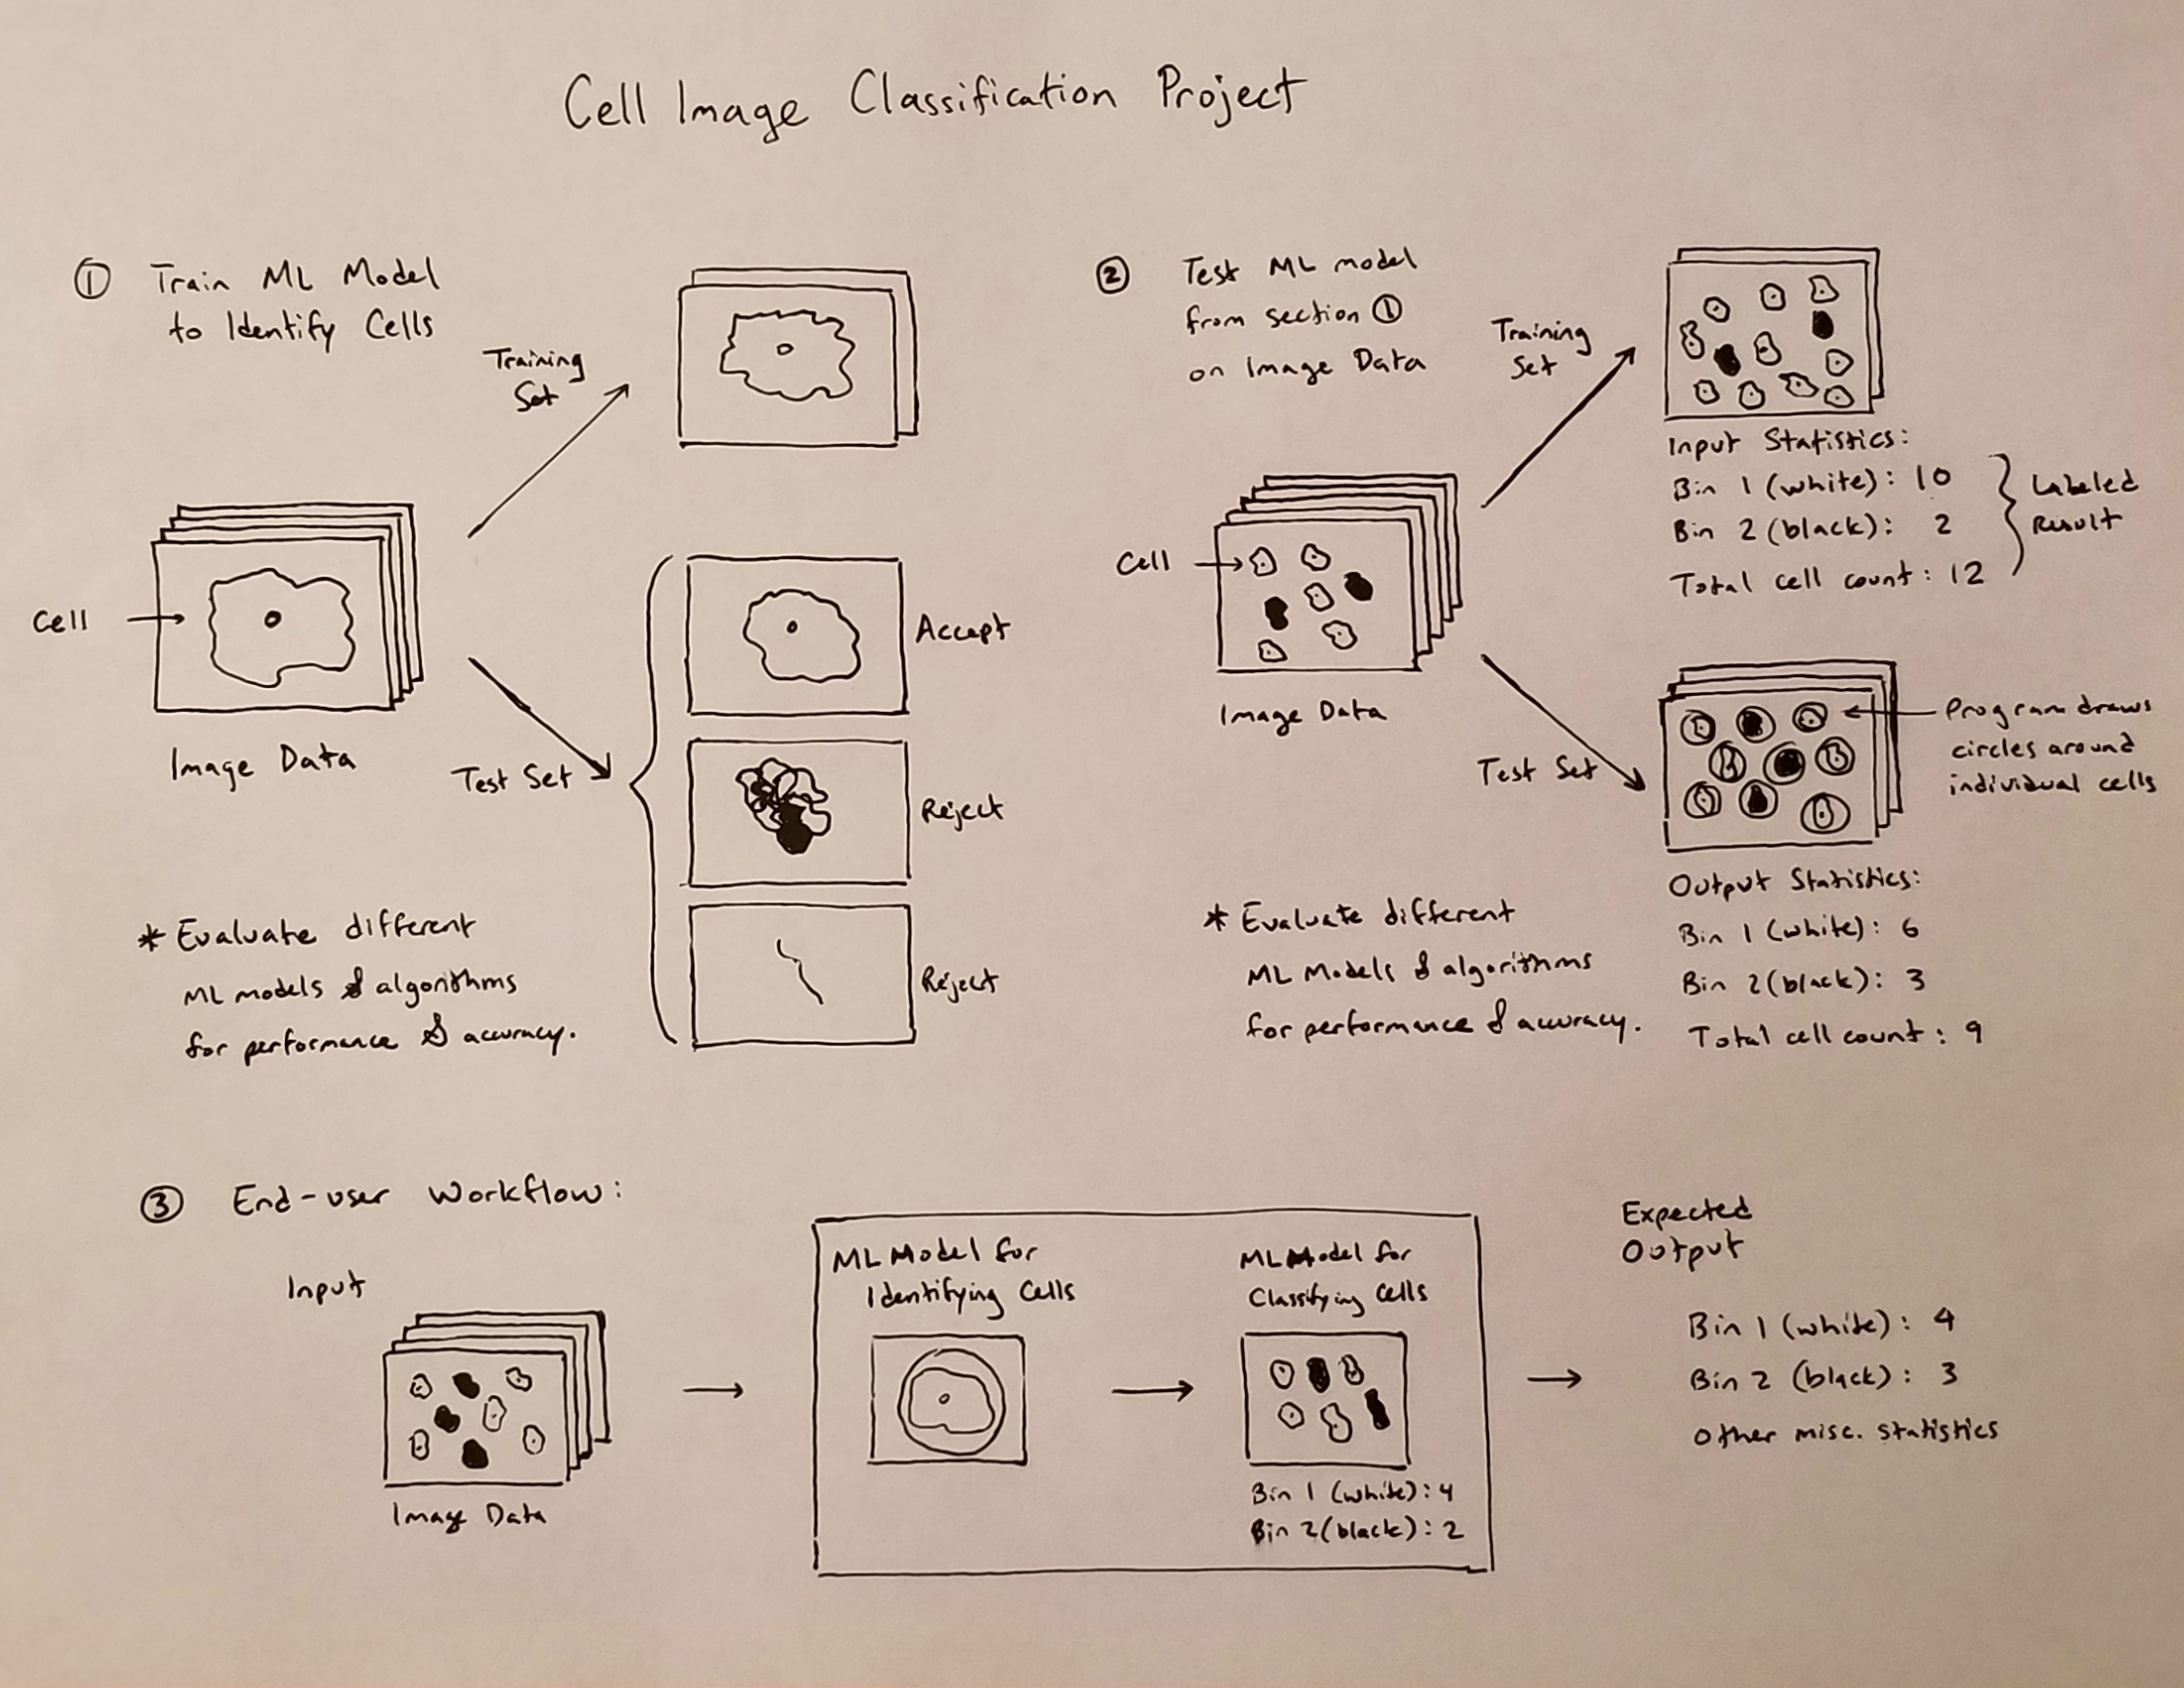 Cell Image Classification Project
① Train ML Model
to Identify Cells
Training
Set
Cell
Image Data
Test Set
Accept
Reject
Reject
* Evaluate different
ML models & algorithms
for performance & accuracy.
② Test ML model
from section ①
on Image Data
Training
Set
Cell
Image Data
Test Set
Input Statistics:
Bin 1 (white): 10
Bin 2 (black): 2
Total cell count: 12
Labeled
result
Program draws
circles around
individual cells
Output Statistics:
Bin 1 (white): 6
Bin 2 (black): 3
Total cell count: 9
* Evaluate different
ML Models & algorithms
for performance & accuracy.
③ End-user Workflow:
Input
Image Data
ML Model for
Identifying Cells
ML Model for
Classifying Cells
Bin 1 (white): 4
Bin 2 (black): 2
Expected
Output
Bin 1 (white): 4
Bin 2 (black): 3
Other misc. statistics